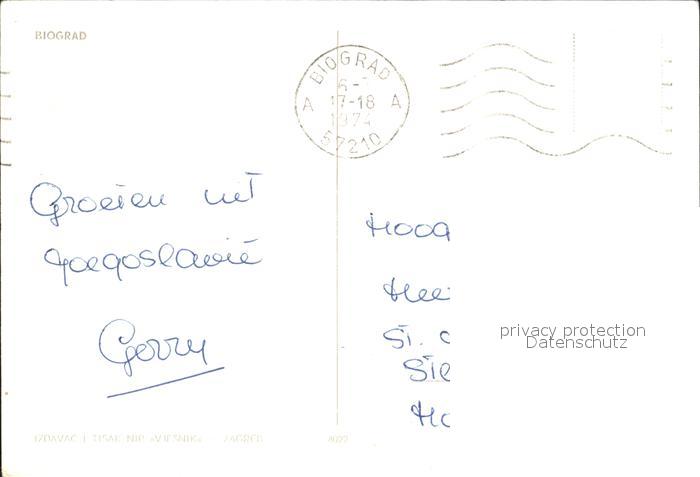 BIOGRAD
BIOGRAD
6-
A 17-18 A
1974
57210
Groeten uit
Joegoslavië
Gerry
Hoog
Hee
St. 
Sie
Ho
privacy protection
Datenschutz
IZDAVAČ I TISAK NIP »VJESNIK« - ZAGREB 4022